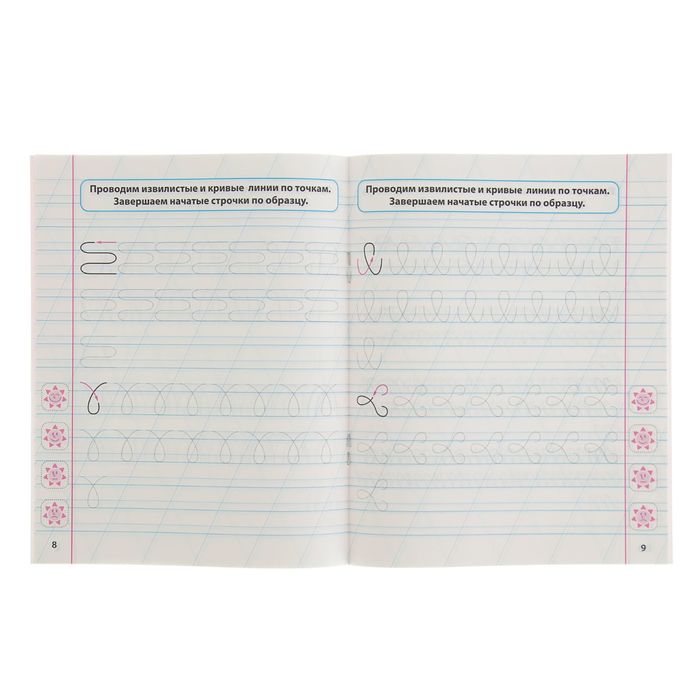 Проводим извилистые и кривые линии по точкам.
Завершаем начатые строчки по образцу.
8
Проводим извилистые и кривые линии по точкам.
Завершаем начатые строчки по образцу.
9